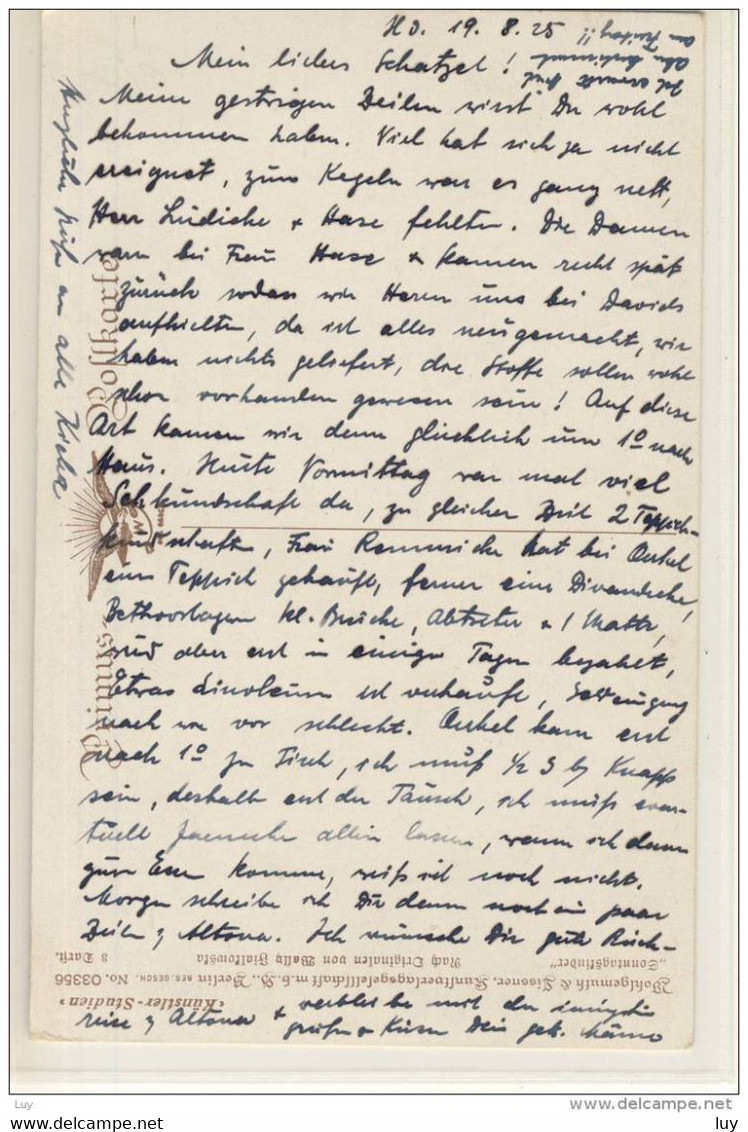 HD. 19. 8. 25
Mein liebes Schatzel!
Ich erwarte Dich
also bestimmt
am Freitag!!
Meine gestrigen Zeilen wirst Du wohl
bekommen haben. Viel hat sich ja nicht
ereignet, zum Kegeln war es ganz nett,
Herr Lüdicke + Hase fehlten. Die Damen
waren bei Frau Hase + kamen recht spät
zurück sodass wir Herren uns bei Davids
aufhielten, da ist alles neugemacht, wir
haben nichts geliefert, die Stoffe sollen wohl
schon vorhanden gewesen sein! Auf diese
Art kamen wir denn glücklich um 1º nach
Haus. Heute Vormittag war mal viel
Sehkundschaft da, zu gleicher Zeit 2 Teppich-
kundschaften, Frau hat bei Onkel
einen Teppich gekauft, ferner eine Divandecke,
Bettvorlagen kl. Brücke, Abtreter + 1 Matte,
wird aber erst in einigen Tagen bezahlt,
Etwas Linoleum ist verkauft,
nach wie vor schlecht. Onkel kam erst
nach 1º zu Tisch, ich muß ½ 3 by Knapp
sein, deshalb erst der Tausch, ich muß even-
tuell allein lassen, wann ich dann
zum Essen komme, weiß ich noch nicht.
Morgen schreibe ich Dir dann noch ein paar
Zeilen z. Altona. Ich wünsche Dir gute Rück-
reise z. Altona + verbleibe mit den innigsten
grüßen + Küssen Dein gel.
Herzliche Grüße an alle Kieler
Primus-Postkarte
Wohlgemuth & Lissner, Kunstverlagsgesellschaft m. b. H., Berlin
„Künstler-Studien“ RES. GESCH. No. 03356
„Sonntagskinder“ Nach Originalen von Wally Fialkowska 3 Darst.
Luy
delcampe.net
Luy
www.delcampe.net
luy